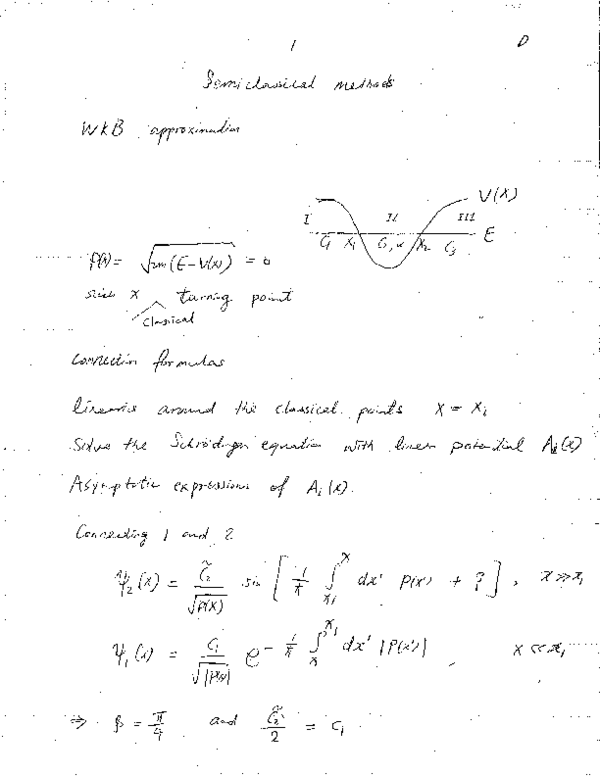 1 D
Semiclassical methods
WKB approximation
V(x)
I II III
C₁ x₁ C₂, α x₂ C₃ E
p(x) = √(2m(E-V(x))) = 0
such x turning point
classical
Connection formulas
linearize around the classical points x = xᵢ
Solve the Schrödinger equation with linear potential Ai(x)
Asymptotic expressions of Ai(x).
Connecting 1 and 2
ψ₂(x) = C̃₂/√p(x) sin [ 1/ħ ∫_{x₁}^{x} dx' p(x') + β ], x ≫ x₁
ψ₁(x) = C₁/√|p(x)| e^{- 1/ħ ∫_{x}^{x₁} dx' |p(x')|} x ≪ x₁
⇒ β = π/4 and C̃₂/2 = C₁